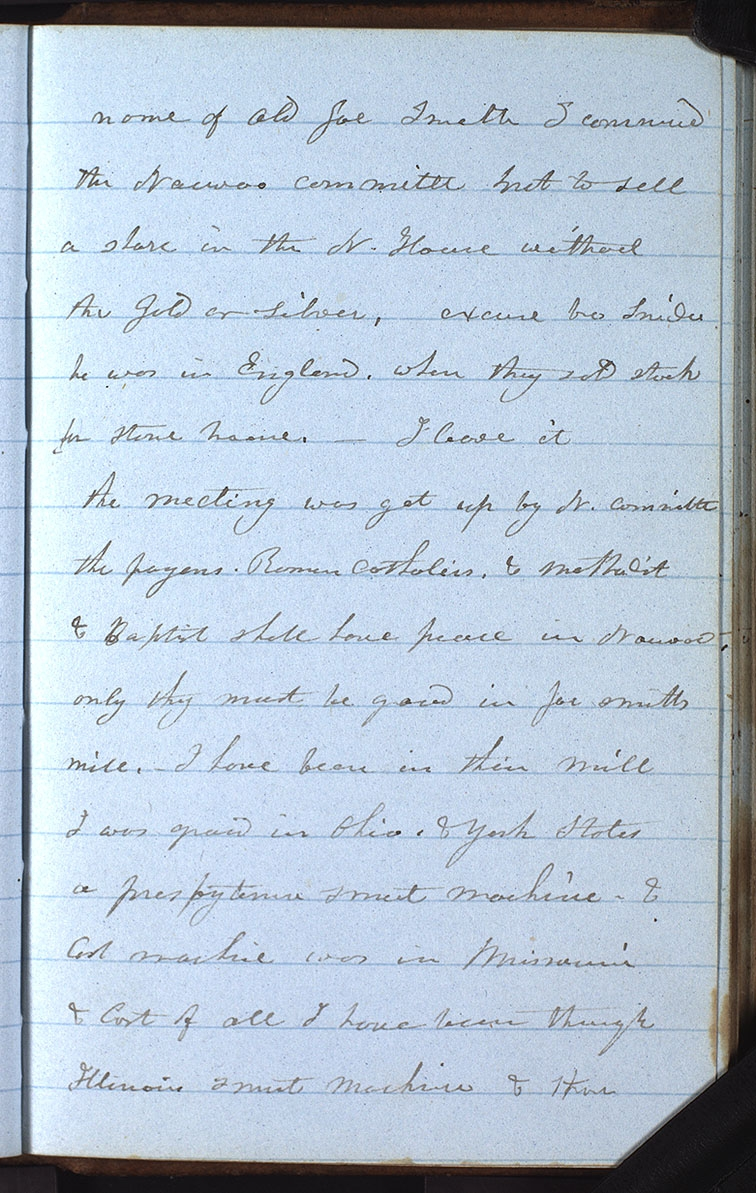 name of Old Joe Smith I command
the Nauvoo committe not to sell
a share in the N. House without
the Gold or silver, excuse bro Snider
he was in England. when they sold stock
for stone house. — I leave it
the meeting was got up by N. committe
the pagans. Roman Catholics. & methodist
& Baptist shall have peace in Nauvoo.
only they must be groud in Joe smiths
mill. — I have been in their mill
I was groud in Ohio. & York States
a presbyterian smut machine - &
last machine was in Missouri
& last of all I have been through
Illinois smut machine &